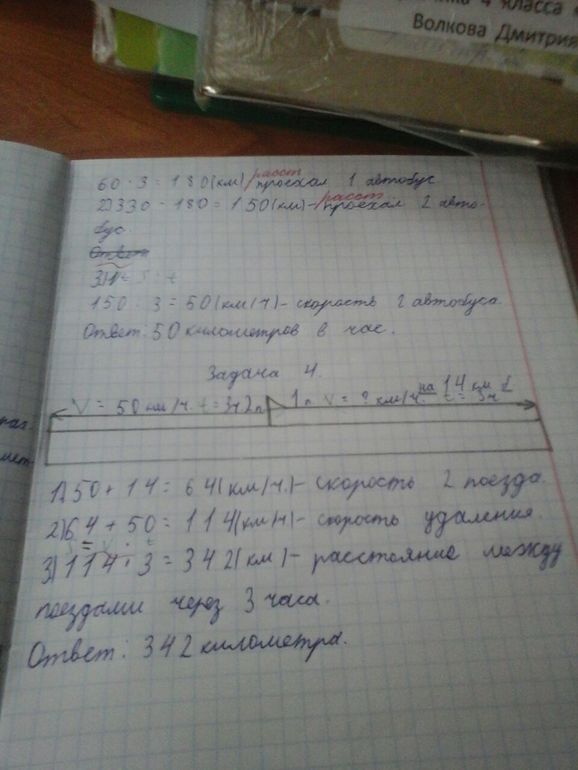 4 класса
Волкова Дмитрия
60 · 3 = 180 (км) расст проехал 1 автобус
2) 330 - 180 = 150 (км) - расст проехал 2 авто-
бус.
Ответ
150 : 3 = 50 (км/ч) - скорость 2 автобуса.
Ответ: 50 километров в час.
Задача 4.
V = 50 км/ч. t = 3ч 2п. 1п V = ? км/ч. на 14 км t = 3ч
1) 50 + 14 = 64 (км/ч) - скорость 2 поезда.
2) 64 + 50 = 114 (км/ч) - скорость удаления.
S = V · t
3) 114 · 3 = 342 (км) - расстояние между
поездами через 3 часа.
Ответ: 342 километра.